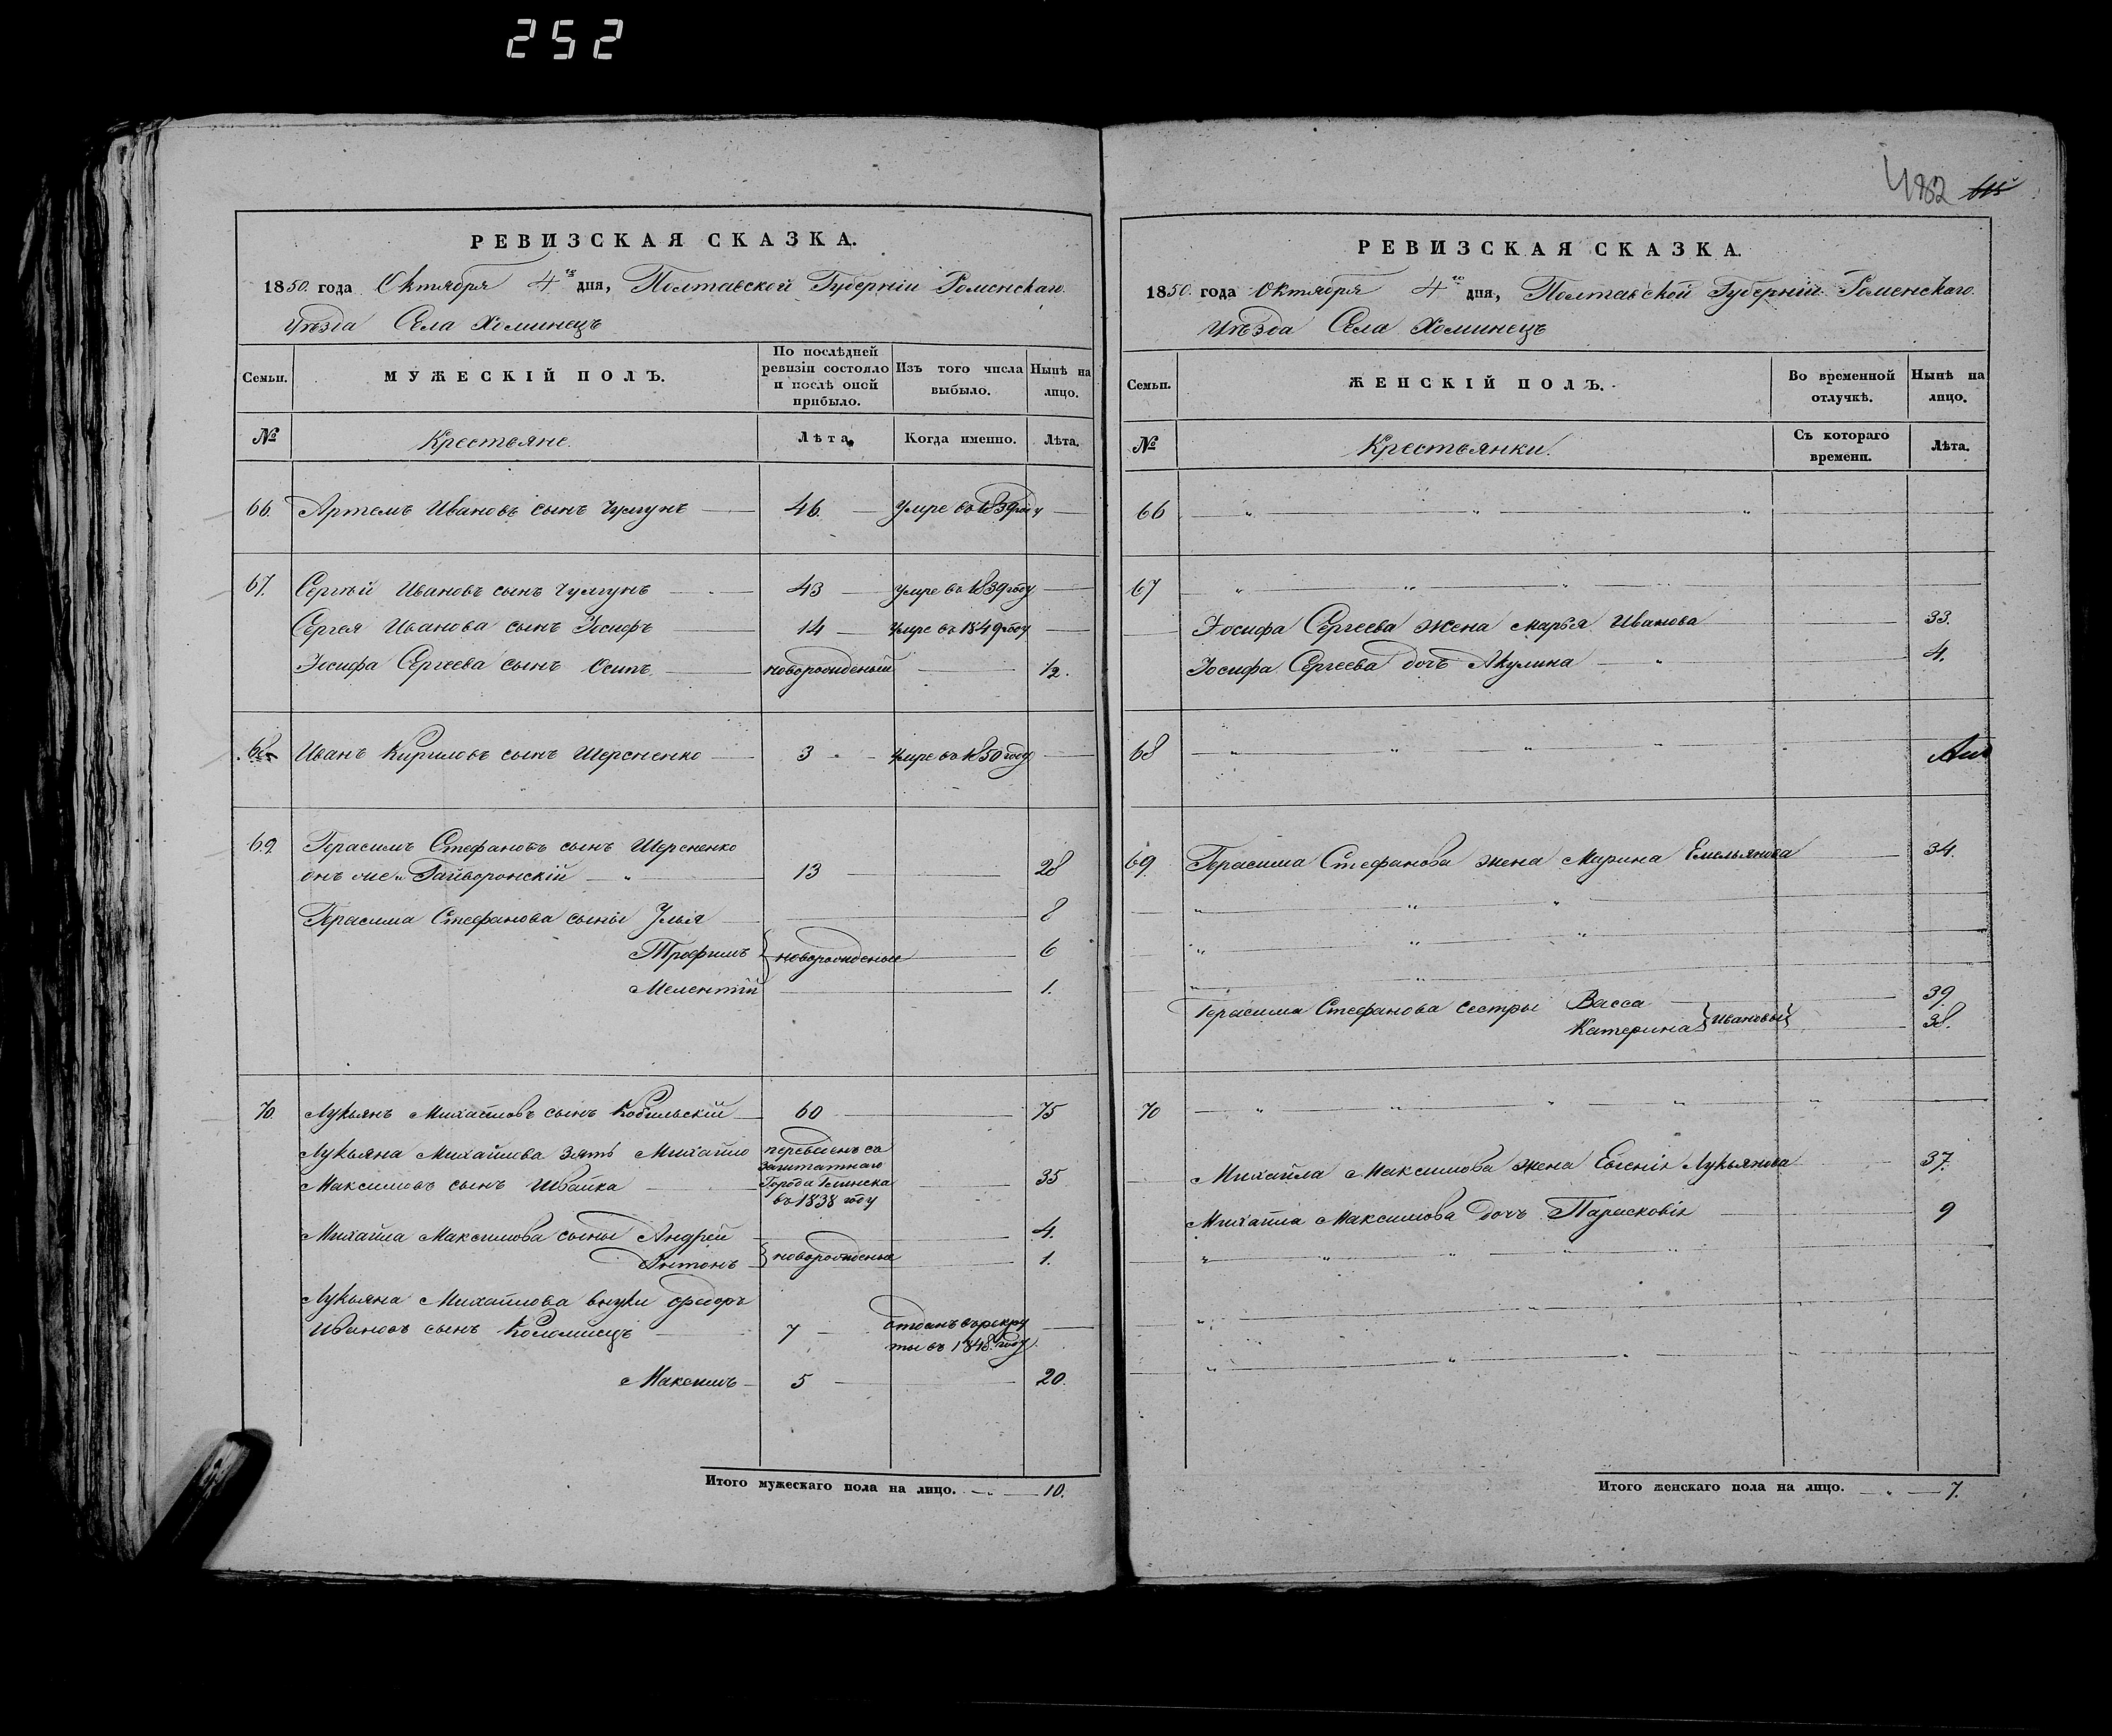 252
482
РЕВИЗСКАЯ СКАЗКА.
1850. года Октября 4го дня, Полтавской Губерніи Роменскаго
Уѣзда Села Хоминецъ
Семьи.
МУЖЕСКІЙ ПОЛЪ.
По послѣдней ревизіи состояло и послѣ оной прибыло.
Изъ того числа выбыло.
Нынѣ на лицо.
№
Крестьяне.
Лѣта.
Когда именно.
Лѣта.
66. Артемъ Ивановъ сынъ Чумгунъ 46. Умре въ 1839 году
67. Сергѣй Ивановъ сынъ Чумгунъ 43 Умре въ 1839 году
Сергея Иванова сынъ Іосифъ 14 Умре въ 1849 году
Іосифа Сергеева сынъ Осипъ новорожденый 1/2.
68 Иванъ Кириловъ сынъ Шерсненко 3 Умре въ 1850 году
69. Герасимъ Стефановъ сынъ Шерсненко
онъ же Гайворонскій 13 28
Герасима Стефанова сыны Улья 8
Трофимъ новорожденые 6
Мелентій 1.
70. Лукьянъ Михайловъ сынъ Кобильскій 60 75
Лукьяна Михайлова зять Михайло
Максимовъ сынъ Швайка
переведенъ съ
заштатнаго
Города Глинска
въ 1838 году
35
Михайла Максимова сыны Андрей 4.
Антонъ новорожденые 1.
Лукьяна Михайлова внуки Федоръ
Ивановъ сынъ Коломиецъ 7 отданъ въ рекру
ты въ 1848. году.
Максимъ 5 20.
Итого мужескаго пола на лицо. 10.
РЕВИЗСКАЯ СКАЗКА.
1850. года Октября 4го дня, Полтавской Губерніи Роменскаго.
Уѣзда Села Хоминецъ
Семьи.
ЖЕНСКІЙ ПОЛЪ.
Во временной отлучкѣ.
Нынѣ на лицо.
№
Крестьянки.
Съ котораго времени.
Лѣта.
66
67
Іосифа Сергеева жена Марья Иванова 33.
Іосифа Сергеева дочь Акулина 4.
68
69 Герасима Стефанова жена Марина Емельянова 34.
Герасима Стефанова сестры Васса 39.
Катерина Ивановы 38.
70
Михайла Максимова жена Евгенія Лукьянова 37.
Михайла Максимова дочь Парасковія 9
Итого женскаго пола на лицо. 7.